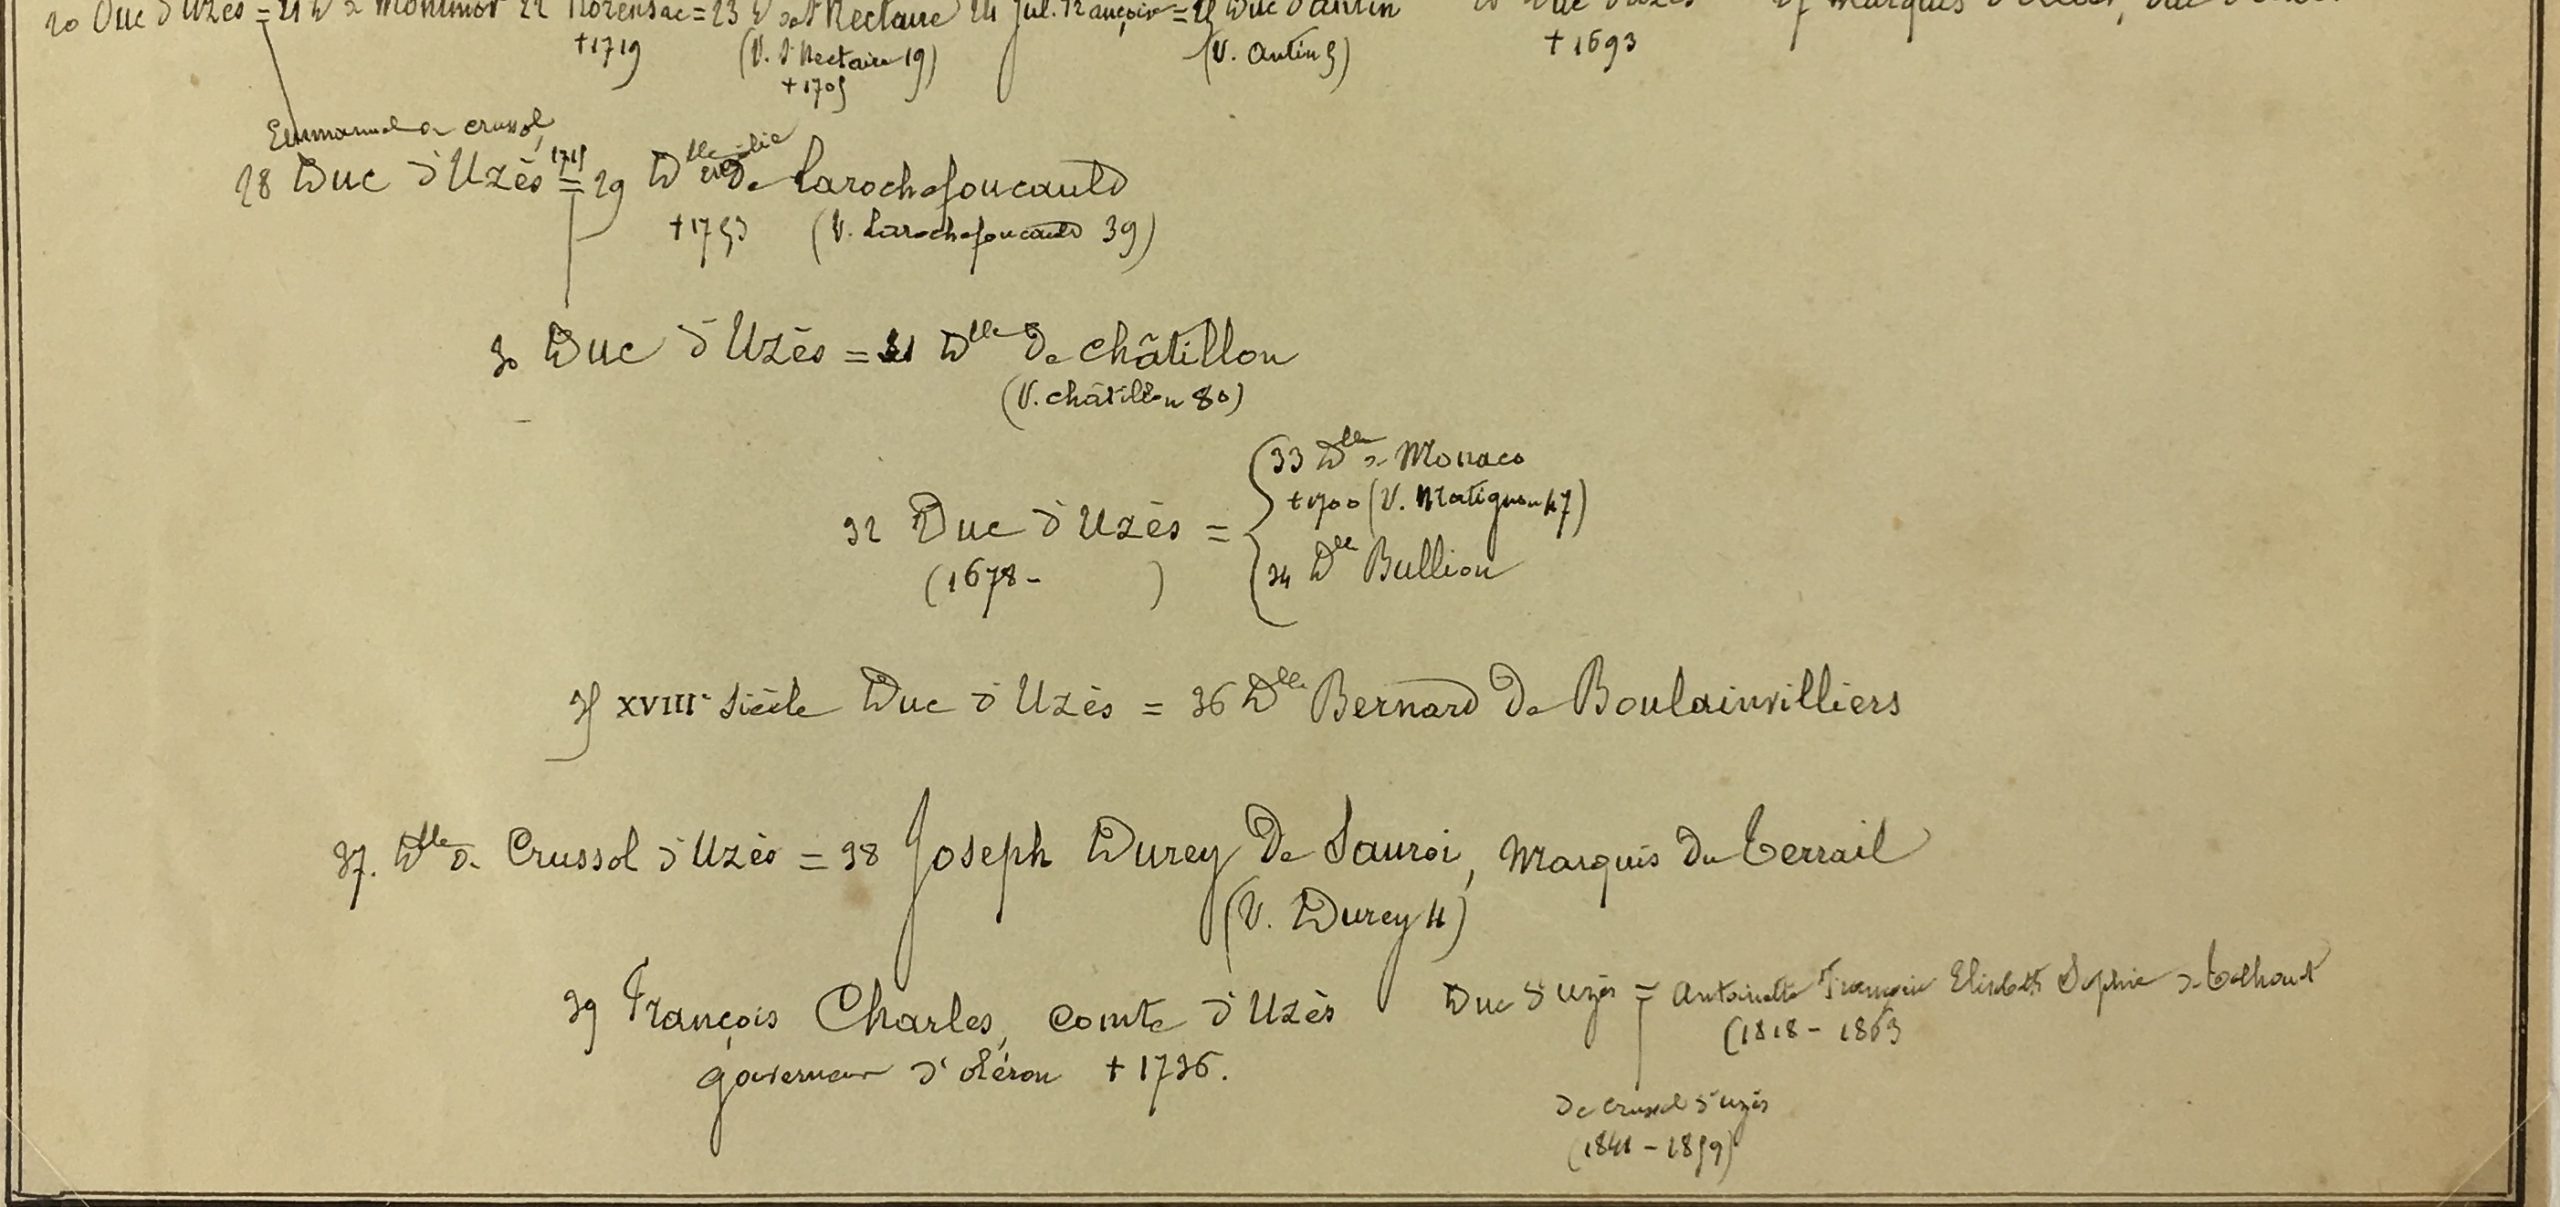 20 Duc d'Uzès = 21 D de Montmor 22 Florensac = 23 D de St Nectaire 24 Jul. Françoise = 25 Duc d'Antin Duc d'Uzès 27 Marquis
+ 1719 (V. St Nectaire 19) (V. Antin 5) + 1693
+ 1705
Emmanuel de Crussol,
28 Duc d'Uzès 1715 = 29 Dlle de Larochefoucauld
+ 1753 (V. Larochefoucauld 39)
30 Duc d'Uzès = 31 Dlle De Châtillon
(V. Châtillon 80)
33 Dlle de Monaco
+ 1700 (V. Matignon 47)
32 Duc d'Uzès =
(1678 - ) 34 Dlle Bullion
35 XVIIIe siècle Duc d'Uzès = 36 Dlle Bernard De Boulainvilliers
37. Dlle de Crussol d'Uzès = 38 Joseph Durey De Sauroi, Marquis Du Terrail
(V. Durey 11)
39 François Charles, comte d'Uzès
gouverneur d'Oléron + 1736.
Duc d'Uzès = Antoinette Françoise Elisabeth Sophie de Talhouet
(1818 - 1863
De Crussol d'Uzès
(1841 - 1859)